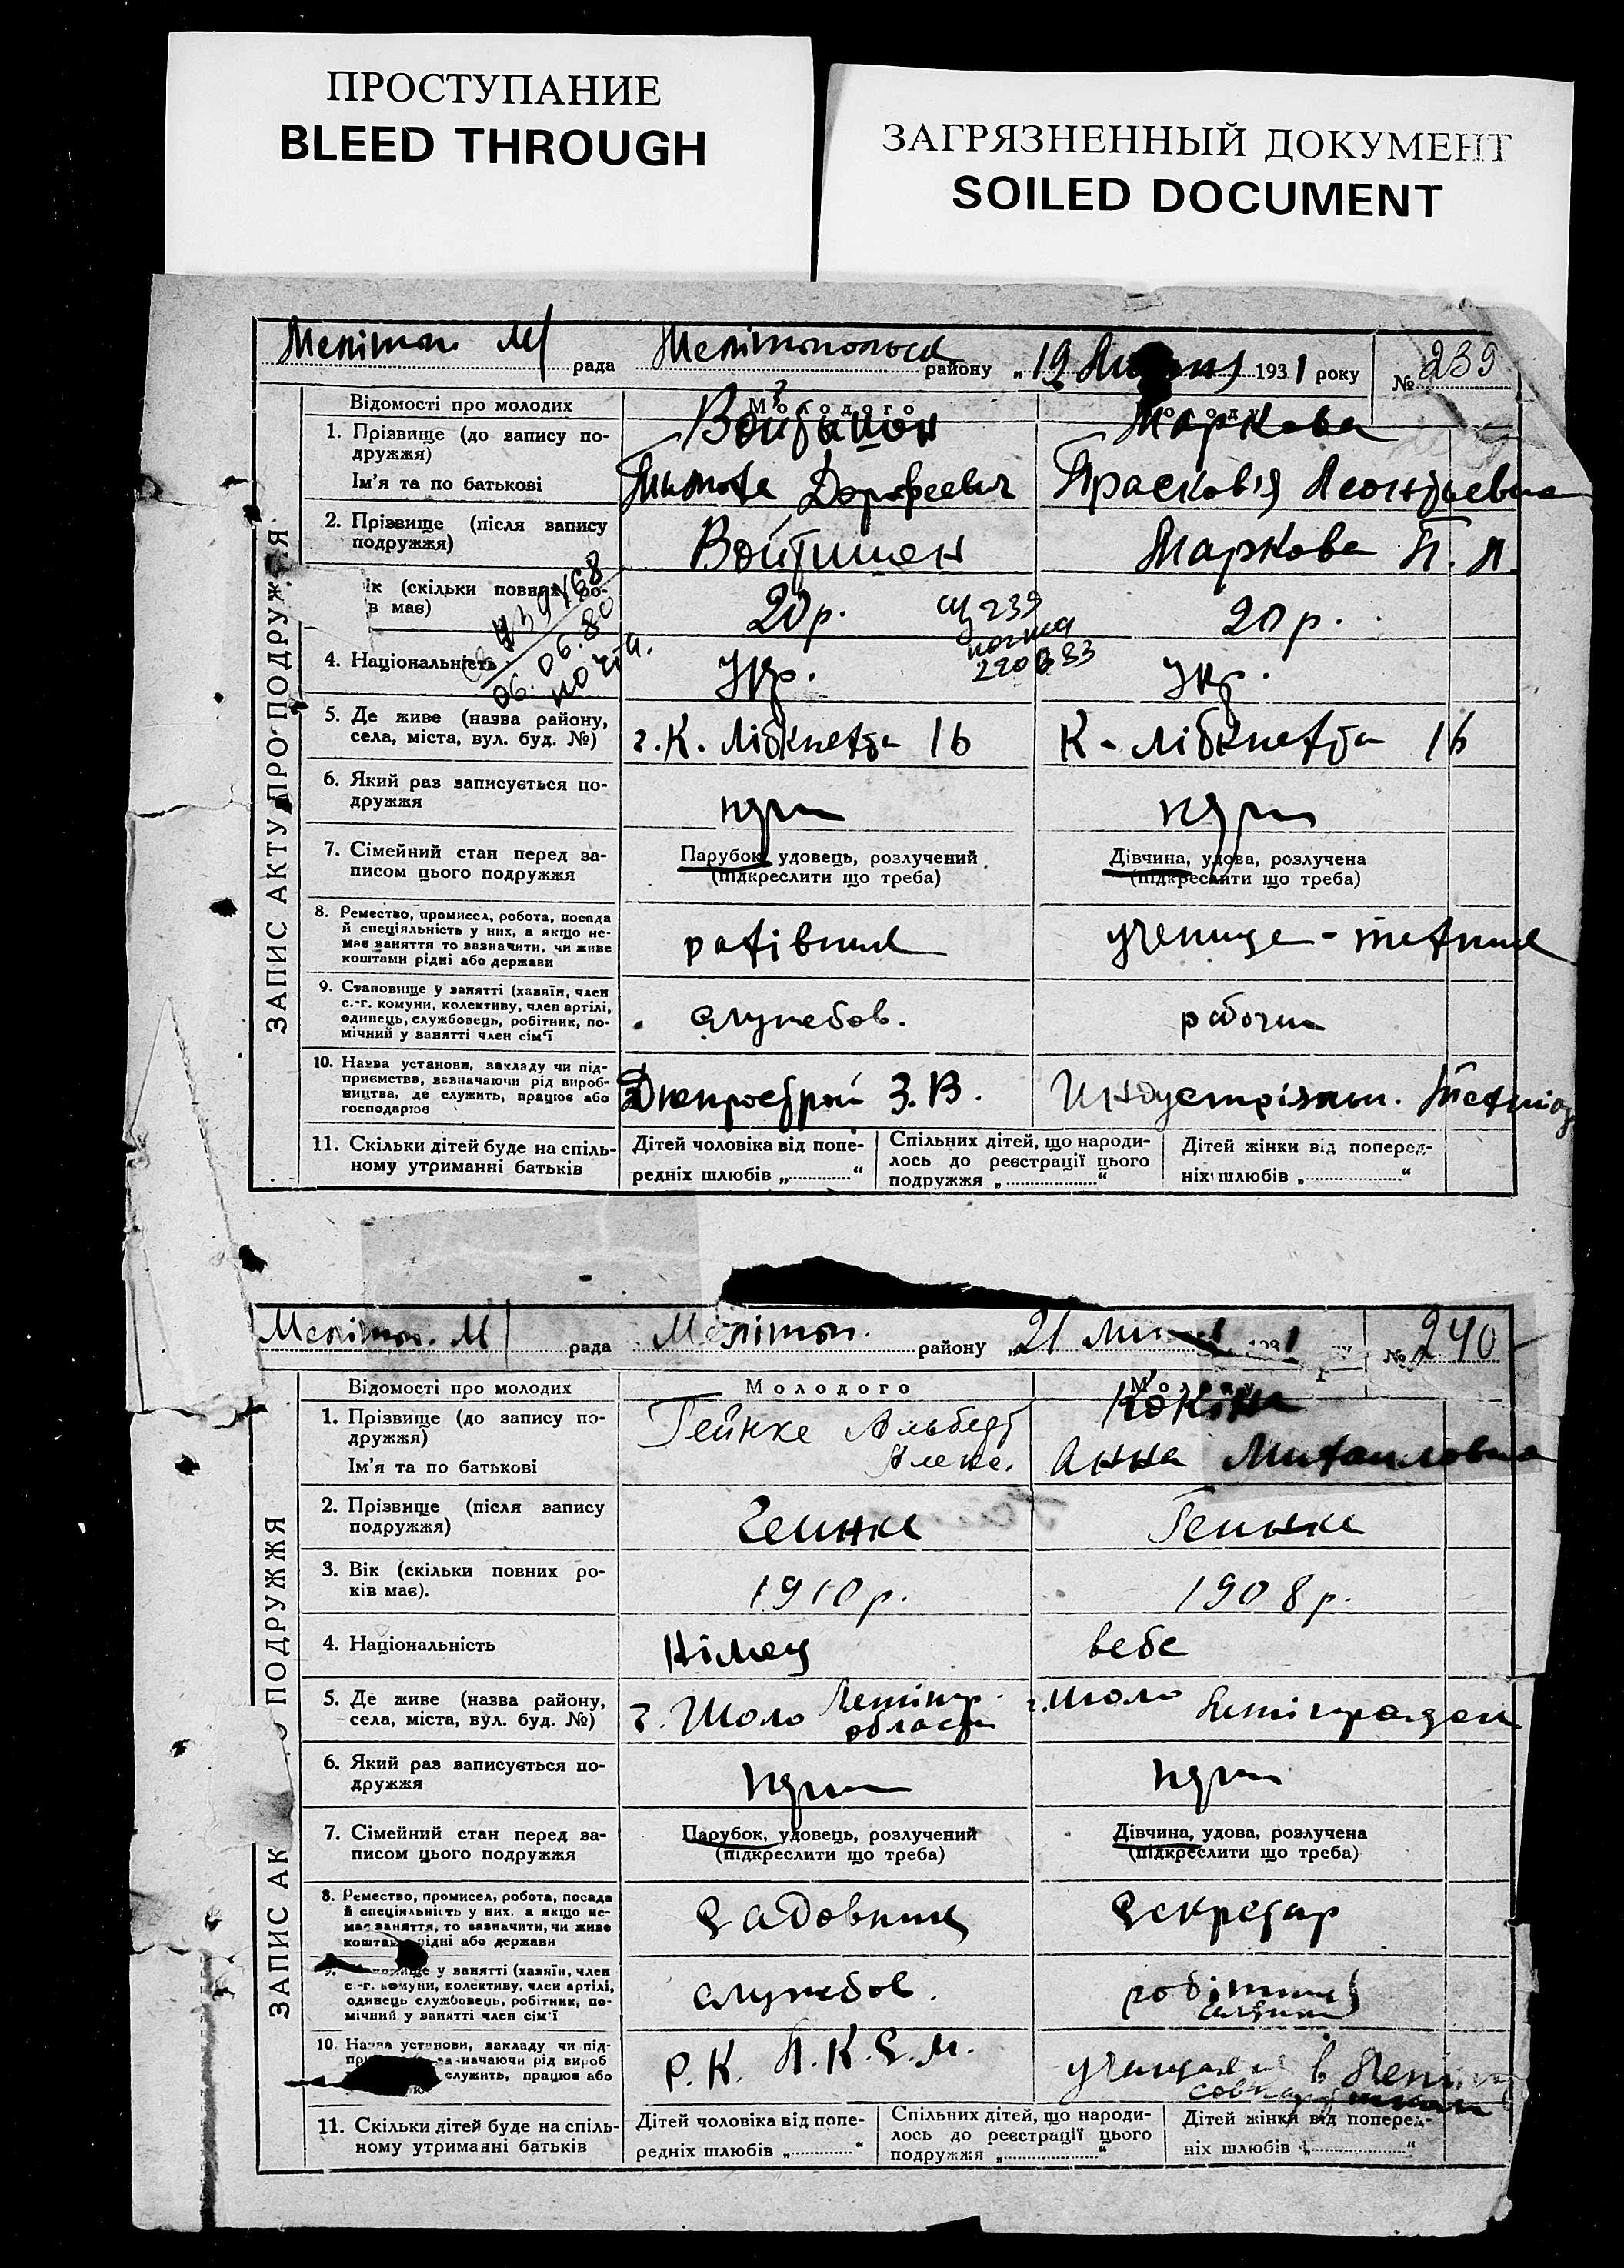 ПРОСТУПАНИЕ
BLEED THROUGH
ЗАГРЯЗНЕННЫЙ ДОКУМЕНТ
SOILED DOCUMENT
Мелітоп. М/ рада Мелітопольськ району „19 193 1 року № 239
Відомості про молодих
Молодого
Молодої
1. Прізвище (до запису по-
дружжя)
Ім'я та по батькові
Маркова
Дорофеевич
Прасков'я Леонтьевна
2. Прізвище (після запису
подружжя)
Войтишен
Маркова П. Л.
ік (скільки повних ро-
в має)
20 р.
20 р.
239
4. Національність
Укр.
Укр.
06.06.80
5. Де живе (назва району,
села, міста, вул. буд. №)
г. К. Лібкнехта 16
К. Лібкнехта 16
6. Який раз записується по-
дружжя
перш
перш
7. Сімейний стан перед за-
писом цього подружжя
Парубок, удовець, розлучений
(підкреслити що треба)
Дівчина, удова, розлучена
(підкреслити що треба)
8. Ремество, промисел, робота, посада
й спеціяльність у них, а якщо не-
має заняття то зазначити, чи живе
коштами рідні або держави
рахівник
учениця - техник
9. Становище у занятті (хазяїн, член
с.-г. комуни, колективу, член артілі,
одинець, службовець, робітник, по-
мічний у занятті член сім'ї
службов.
10. Назва установи, закладу чи під-
приємства, зазначаючи рід вироб-
ництва, де служить, працює або
господарює
Днепрострой З. В.
Индустріальн.
11. Скільки дітей буде на спіль-
ному утриманні батьків
Дітей чоловіка від попе-
редніх шлюбів „ “
Спільних дітей, що народи-
лось до реєстрації цього
подружжя „ “
Дітей жінки від поперед-
ніх шлюбів „ “
ЗАПИС АКТУ ПРО ПОДРУЖЖЯ
Мелітоп. М/ рада Мелітоп. району „21 1931 № 240
Відомості про молодих
Молодого
Молодої
1. Прізвище (до запису по-
дружжя)
Ім'я та по батькові
Гейнке Альберт
Алекс.
Кокіна
Анна Михайловна
2. Прізвище (після запису
подружжя)
Геинке
Геинке
3. Вік (скільки повних ро-
ків має).
1910 р.
1908 р.
4. Національність
Німець
5. Де живе (назва району,
села, міста, вул. буд. №)
г. Шоло Ленінгр.
області
г. Шоло
6. Який раз записується по-
дружжя
перш
перш
7. Сімейний стан перед за-
писом цього подружжя
Парубок, удовець, розлучений
(підкреслити що треба)
Дівчина, удова, розлучена
(підкреслити що треба)
8. Ремество, промисел, робота, посада
й спеціяльність у них, а якщо не-
має заняття, то зазначити, чи живе
коштам рідні або держави
Садовник
Секретар
у занятті (хазяїн, член
с.-г. комуни, колективу, член артілі,
одинець службовець, робітник, по-
мічний у занятті член сім'ї
службов.
робітник
10. Назва установи, закладу чи під-
зазначаючи рід вироб
служить, працює або
Р. К. Л. К. С. М.
в
11. Скільки дітей буде на спіль-
ному утриманні батьків
Дітей чоловіка від попе-
редніх шлюбів „ “
Спільних дітей, що народи-
лось до реєстрації цього
подружжя „ “
Дітей жінки від поперед-
ніх шлюбів „ “
ЗАПИС АК ПОДРУЖЖЯ